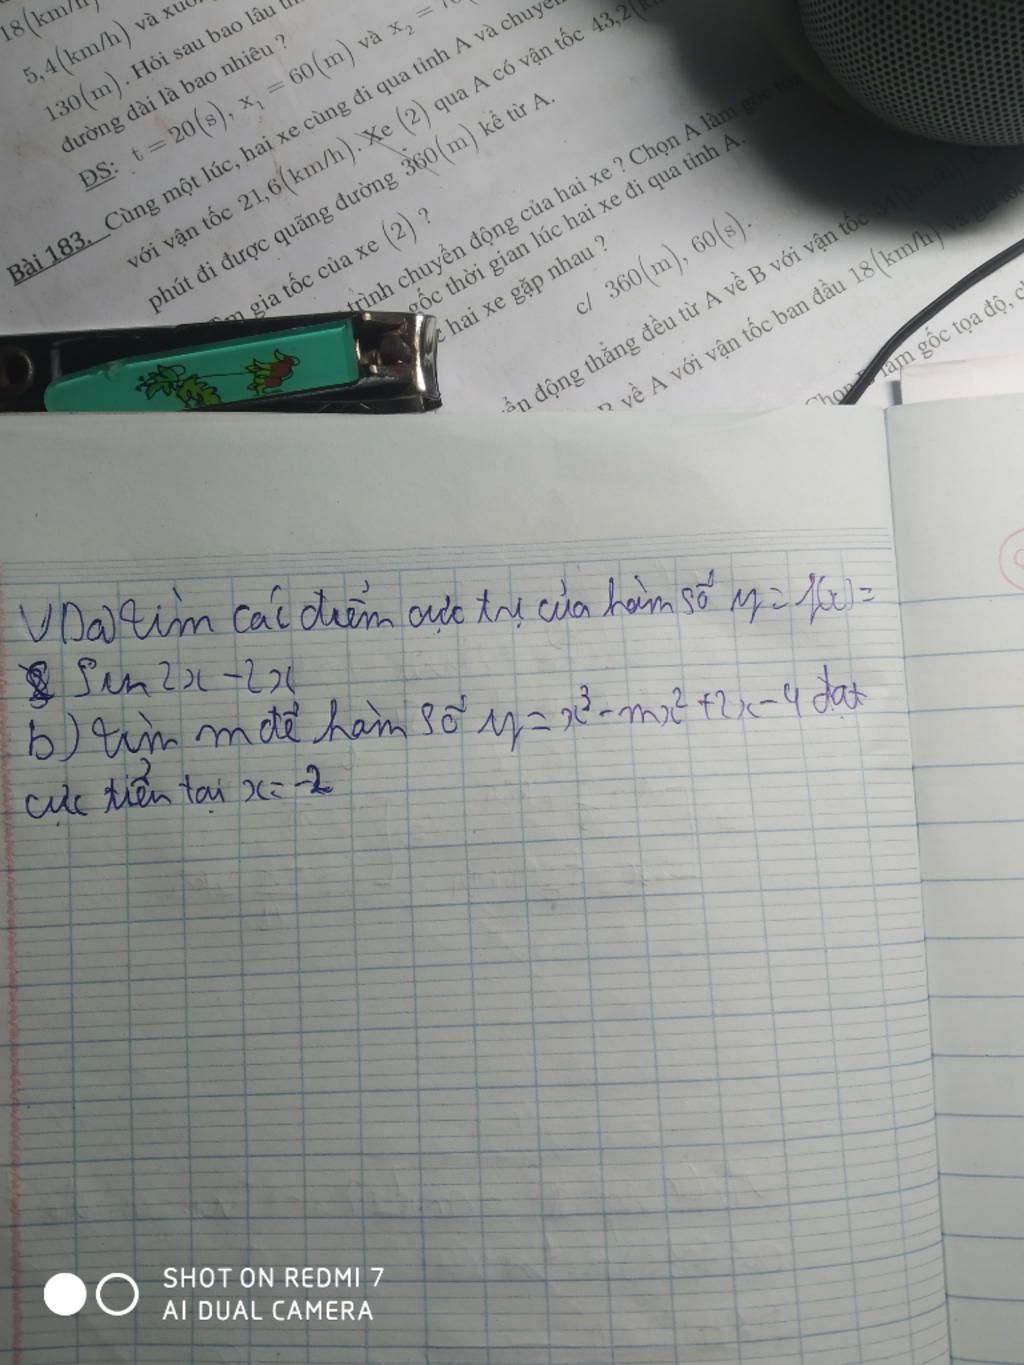 18(km/h)
5,4(km/h) và xuôi
130(m). Hỏi sau bao lâu
đường dài là bao nhiêu ?
ĐS: t = 20(s), x₁ = 60(m) và x₂ =
Bài 183. Cùng một lúc, hai xe cùng đi qua tỉnh A và chuyển
với vận tốc 21,6(km/h). Xe (2) qua A có vận tốc 43,2(k
phút đi được quãng đường 360(m) kể từ A.
gia tốc của xe (2) ?
trình chuyển động của hai xe ? Chọn A làm gốc
gốc thời gian lúc hai xe đi qua tỉnh A.
hai xe gặp nhau ?
c/ 360(m), 60(s).
động thẳng đều từ A về B với vận tốc
về A với vận tốc ban đầu 18(km/h) và gia
làm gốc tọa độ,
VDa) tìm các điểm cực trị của hàm số y = f(x) =
Sin 2x - 2x
b) tìm m để hàm số y = x³ - mx² + 2x - 4 đạt
cực tiểu tại x = -2
SHOT ON REDMI 7
AI DUAL CAMERA